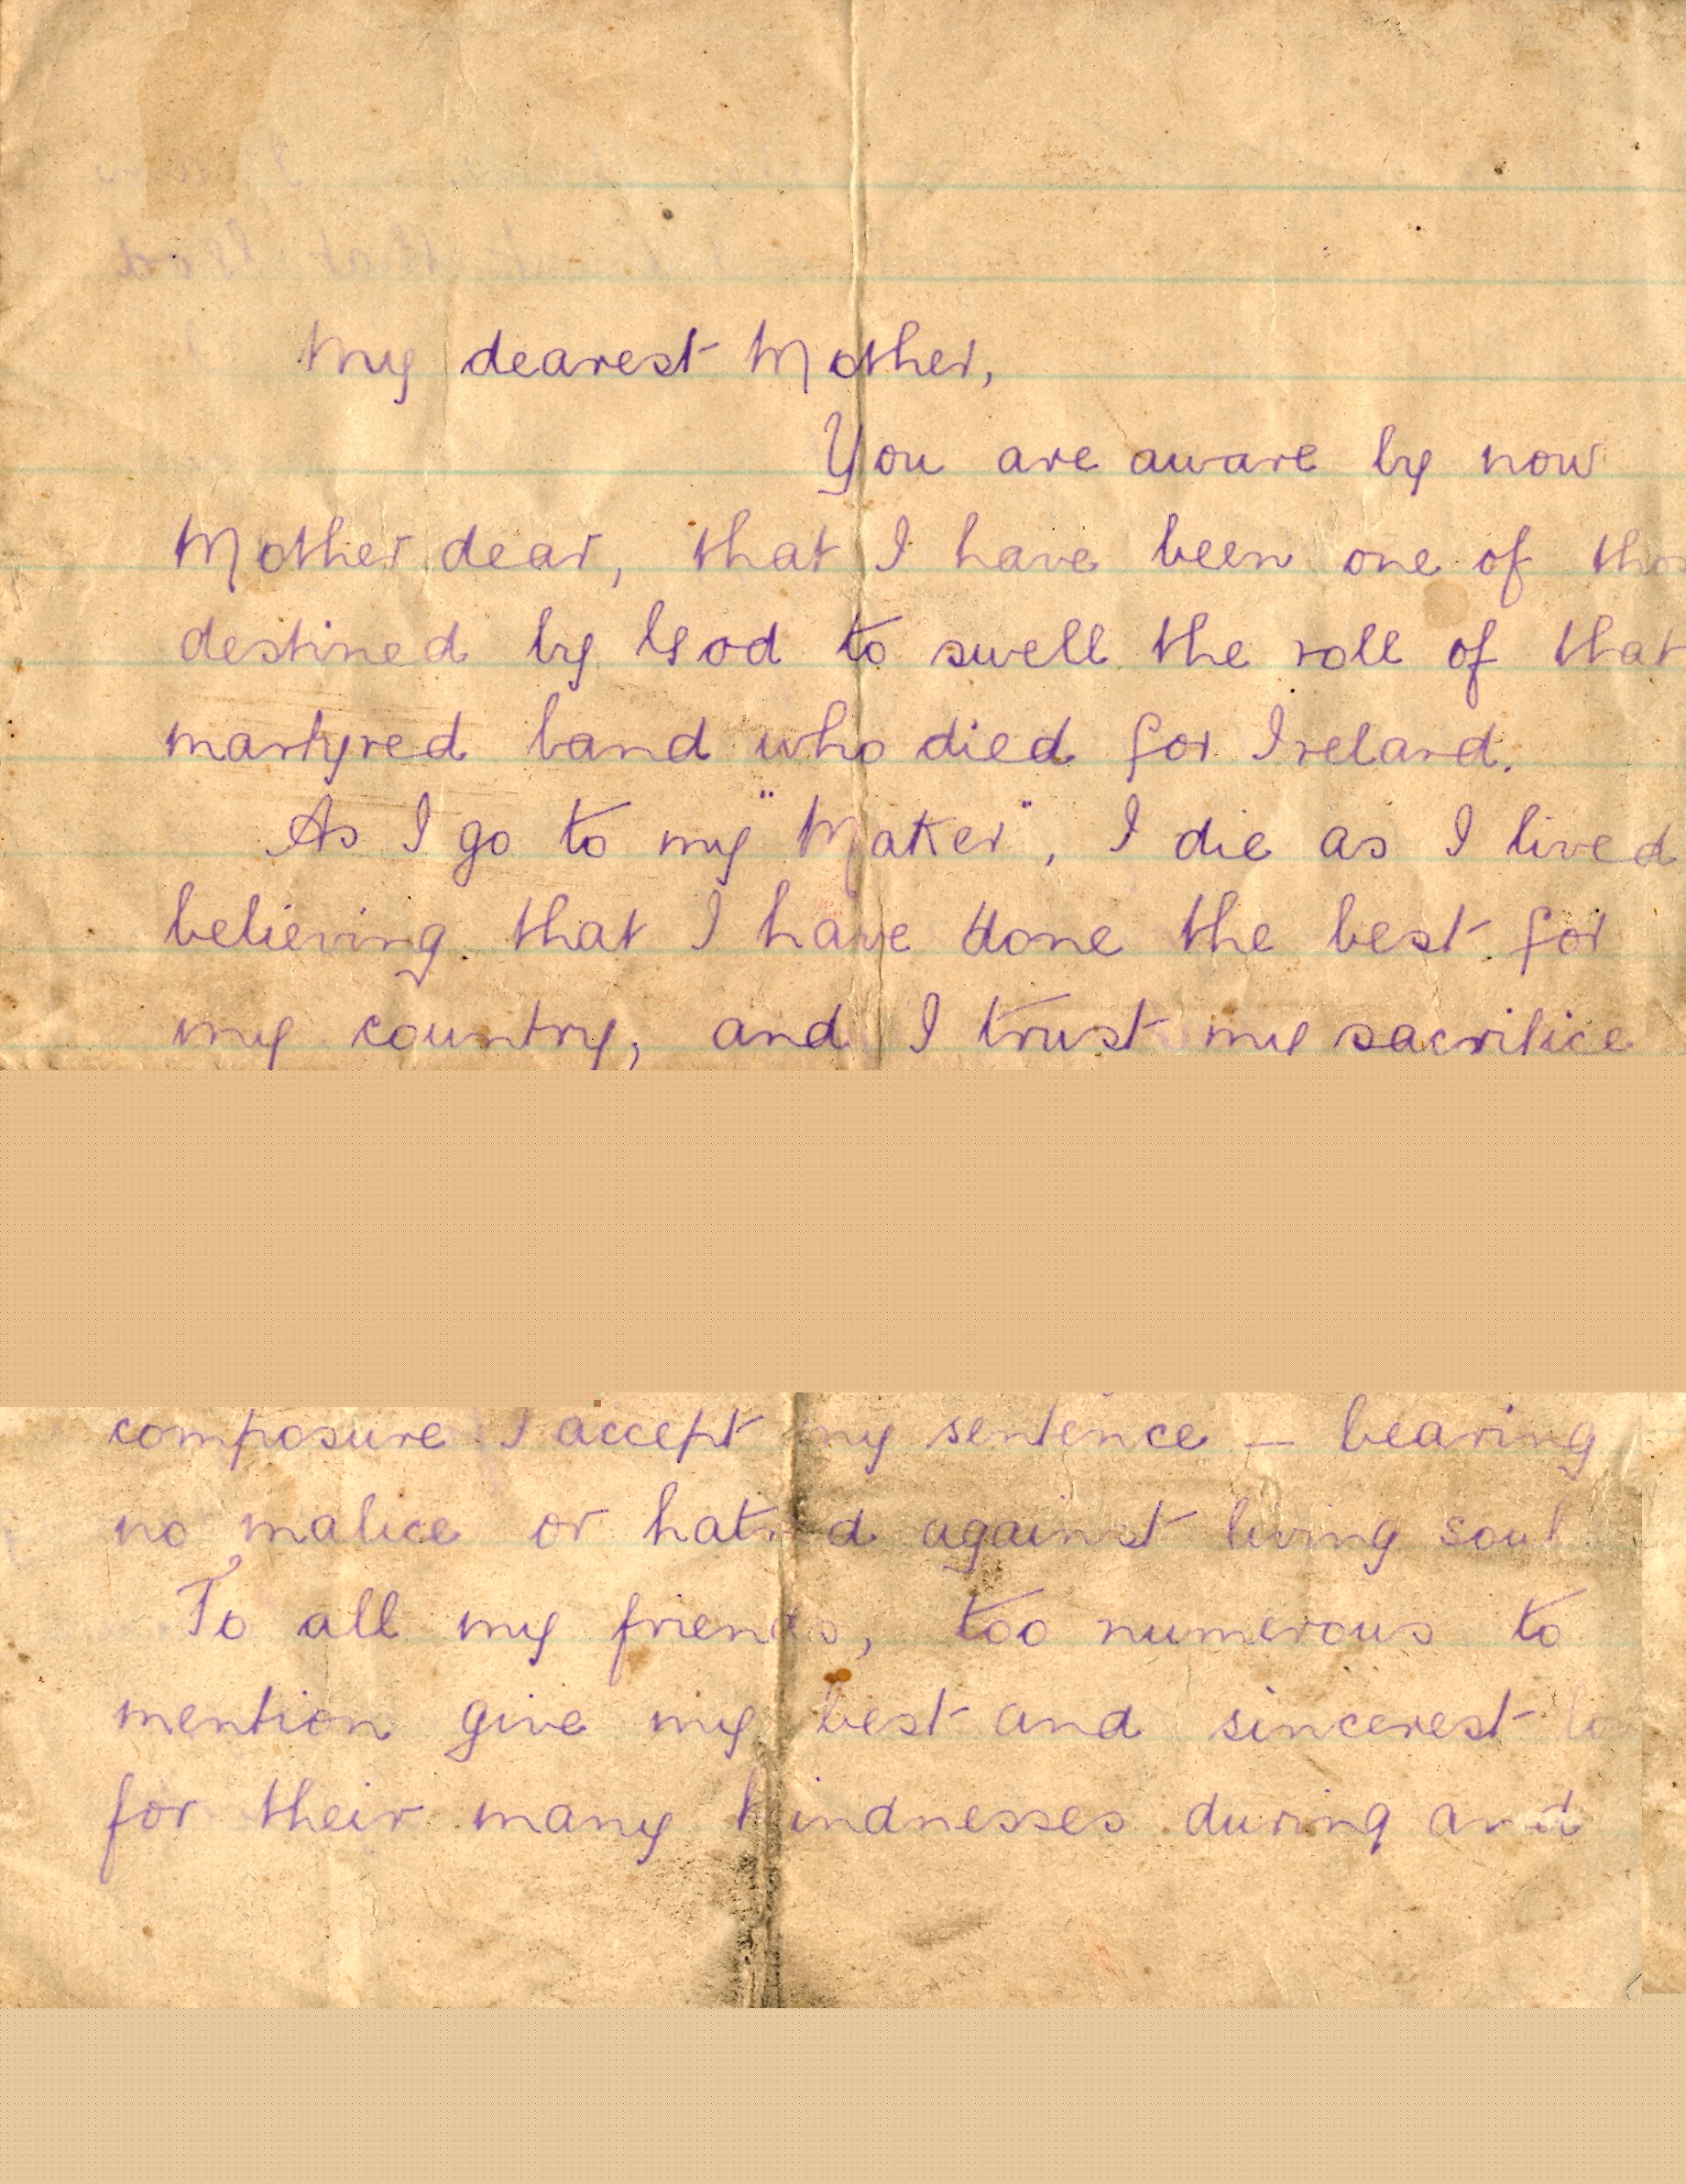 My dearest Mother,
You are aware by now
Mother dear, that I have been one of
destined by God to swell the roll of that
martyred band who died for Ireland.
As I go to my "Maker", I die as I lived
believing that I have done the best for
my country, and I trust my sacrifice
composure I accept my sentence — bearing
no malice or hatred against living soul
To all my friends, too numerous to
mention give my best and sincerest
for their many kindnesses during and